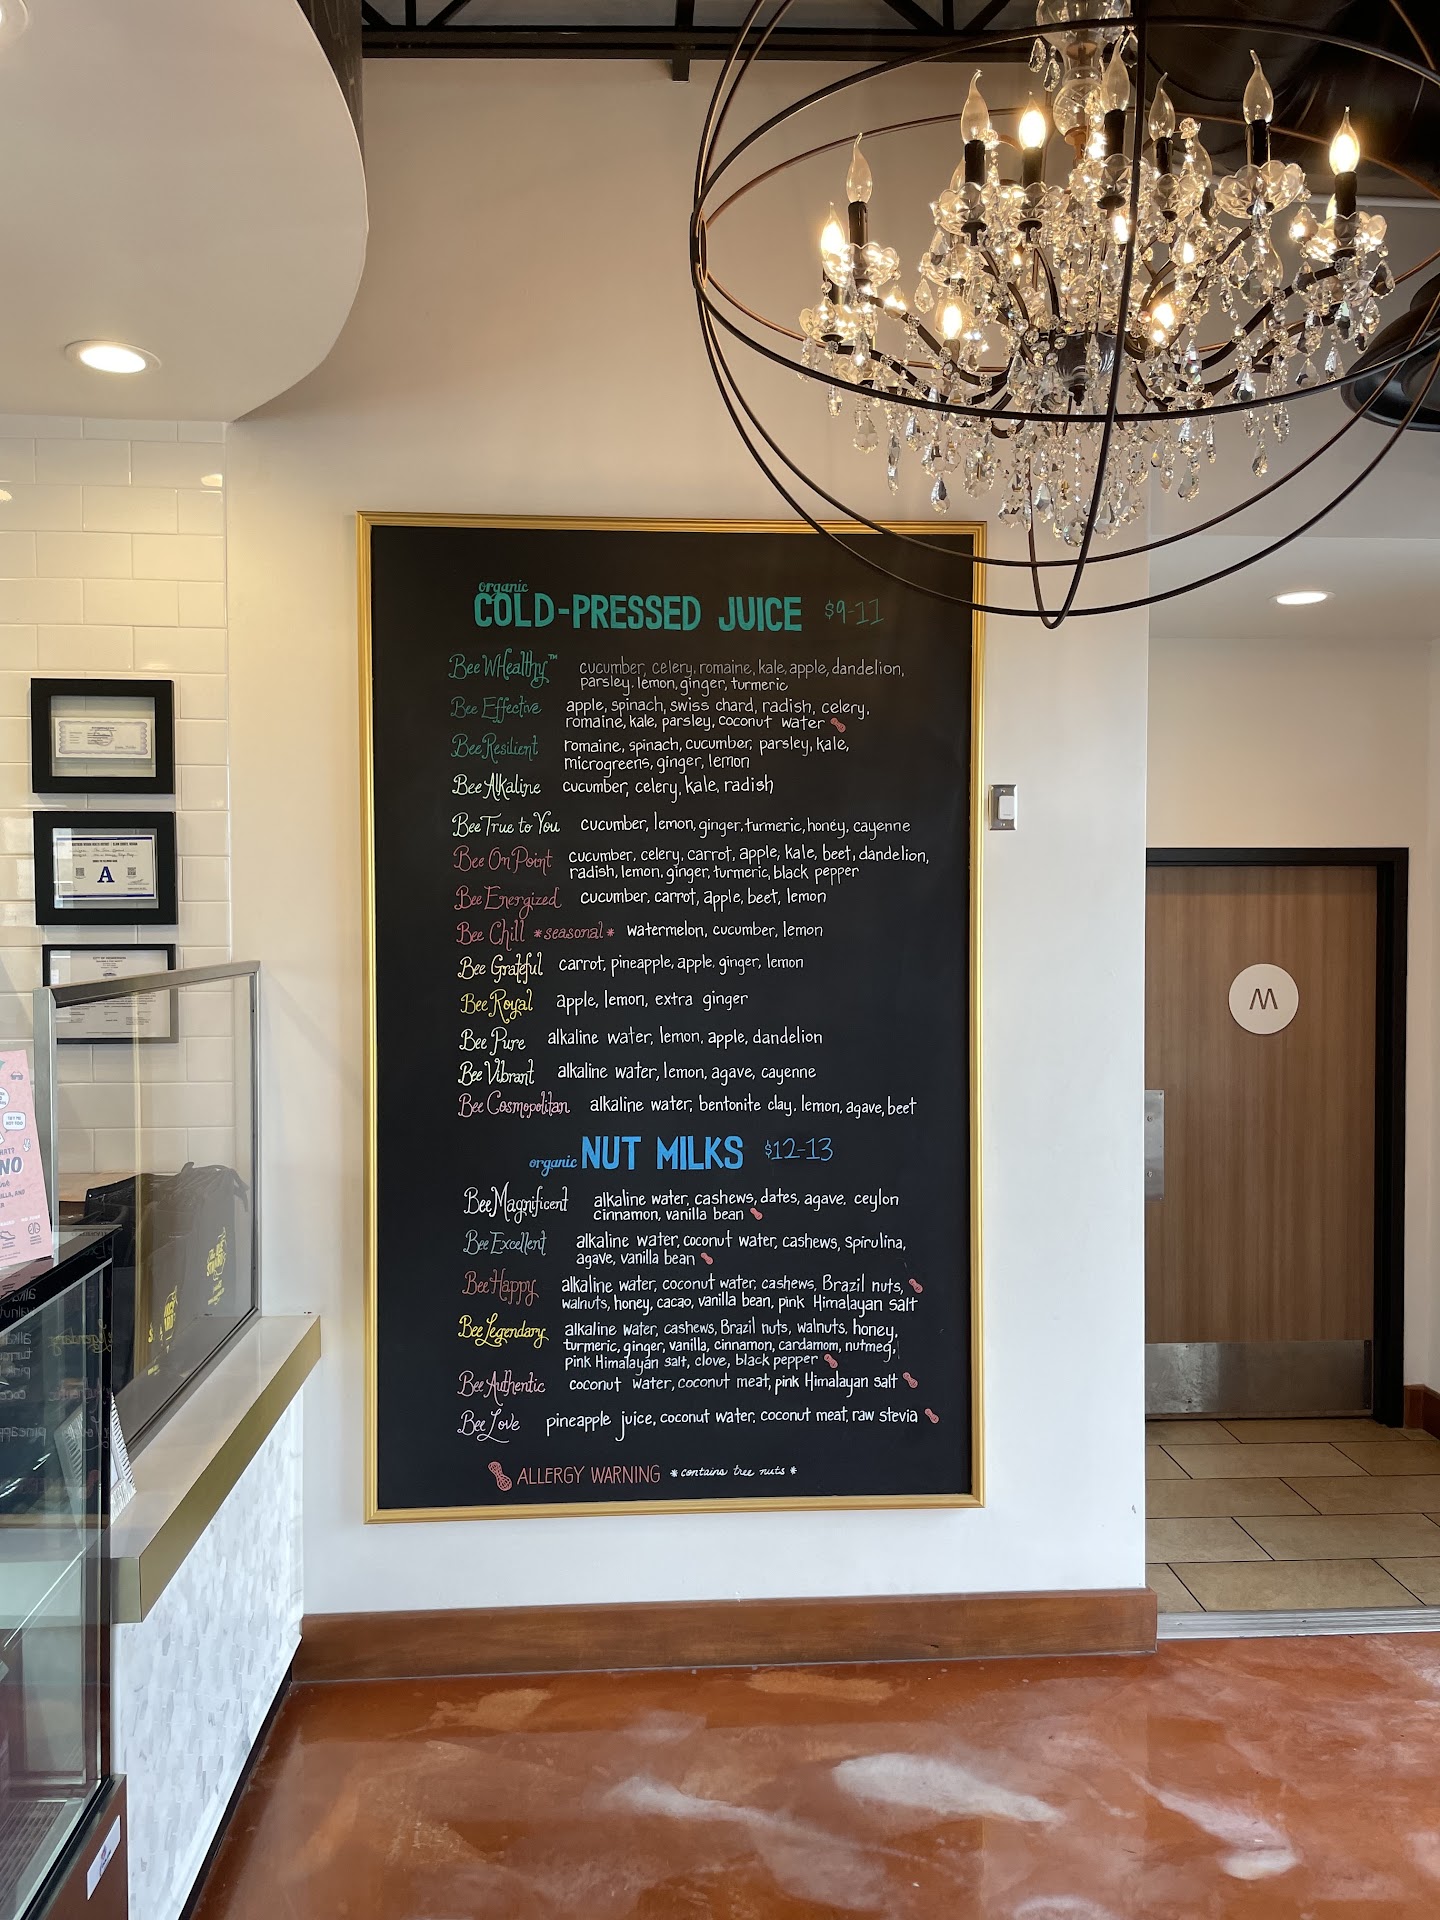 organic
COLD-PRESSED JUICE $9-11
Bee WHealthy™ cucumber, celery, romaine, kale, apple, dandelion,
parsley, lemon, ginger, turmeric
Bee Effective apple, spinach, swiss chard, radish, celery,
romaine, kale, parsley, coconut water
Bee Resilient romaine, spinach, cucumber, parsley, kale,
microgreens, ginger, lemon
Bee Alkaline cucumber, celery, kale, radish
Bee True to You cucumber, lemon, ginger, turmeric, honey, cayenne
Bee On Point cucumber, celery, carrot, apple, kale, beet, dandelion,
radish, lemon, ginger, turmeric, black pepper
Bee Energized cucumber, carrot, apple, beet, lemon
Bee Chill *seasonal* watermelon, cucumber, lemon
Bee Grateful carrot, pineapple, apple, ginger, lemon
Bee Royal apple, lemon, extra ginger
Bee Pure alkaline water, lemon, apple, dandelion
Bee Vibrant alkaline water, lemon, agave, cayenne
Bee Cosmopolitan alkaline water, bentonite clay, lemon, agave, beet
organic NUT MILKS $12-13
Bee Magnificent alkaline water, cashews, dates, agave, ceylon
cinnamon, vanilla bean
Bee Excellent alkaline water, coconut water, cashews, spirulina,
agave, vanilla bean
Bee Happy alkaline water, coconut water, cashews, Brazil nuts,
walnuts, honey, cacao, vanilla bean, pink Himalayan salt
Bee Legendary alkaline water, cashews, Brazil nuts, walnuts, honey,
turmeric, ginger, vanilla, cinnamon, cardamom, nutmeg,
pink Himalayan salt, clove, black pepper
Bee Authentic coconut water, coconut meat, pink Himalayan salt
Bee Love pineapple juice, coconut water, coconut meat, raw stevia
ALLERGY WARNING *contains tree nuts*
A